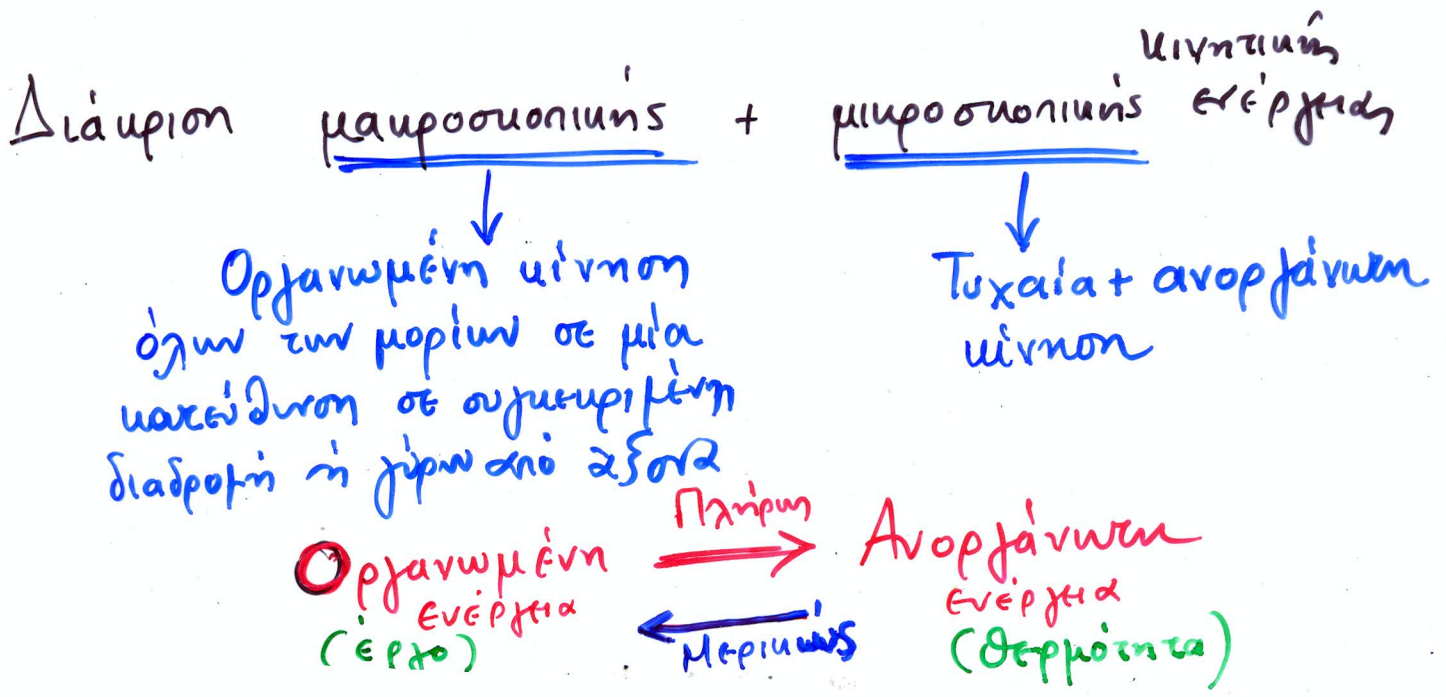 κινητικής
Διάκριση μακροσκοπικής + μικροσκοπικής ενέργειας
Οργανωμένη κίνηση
όλων των μορίων σε μία
κατεύθυνση σε συγκεκριμένη
διαδρομή ή γύρω από άξονα
Τυχαία + ανοργάνωτη
κίνηση
Πλήρης
Οργανωμένη
ενέργεια
(έργο)
Ανοργάνωτη
ενέργεια
(θερμότητα)
Μερικώς